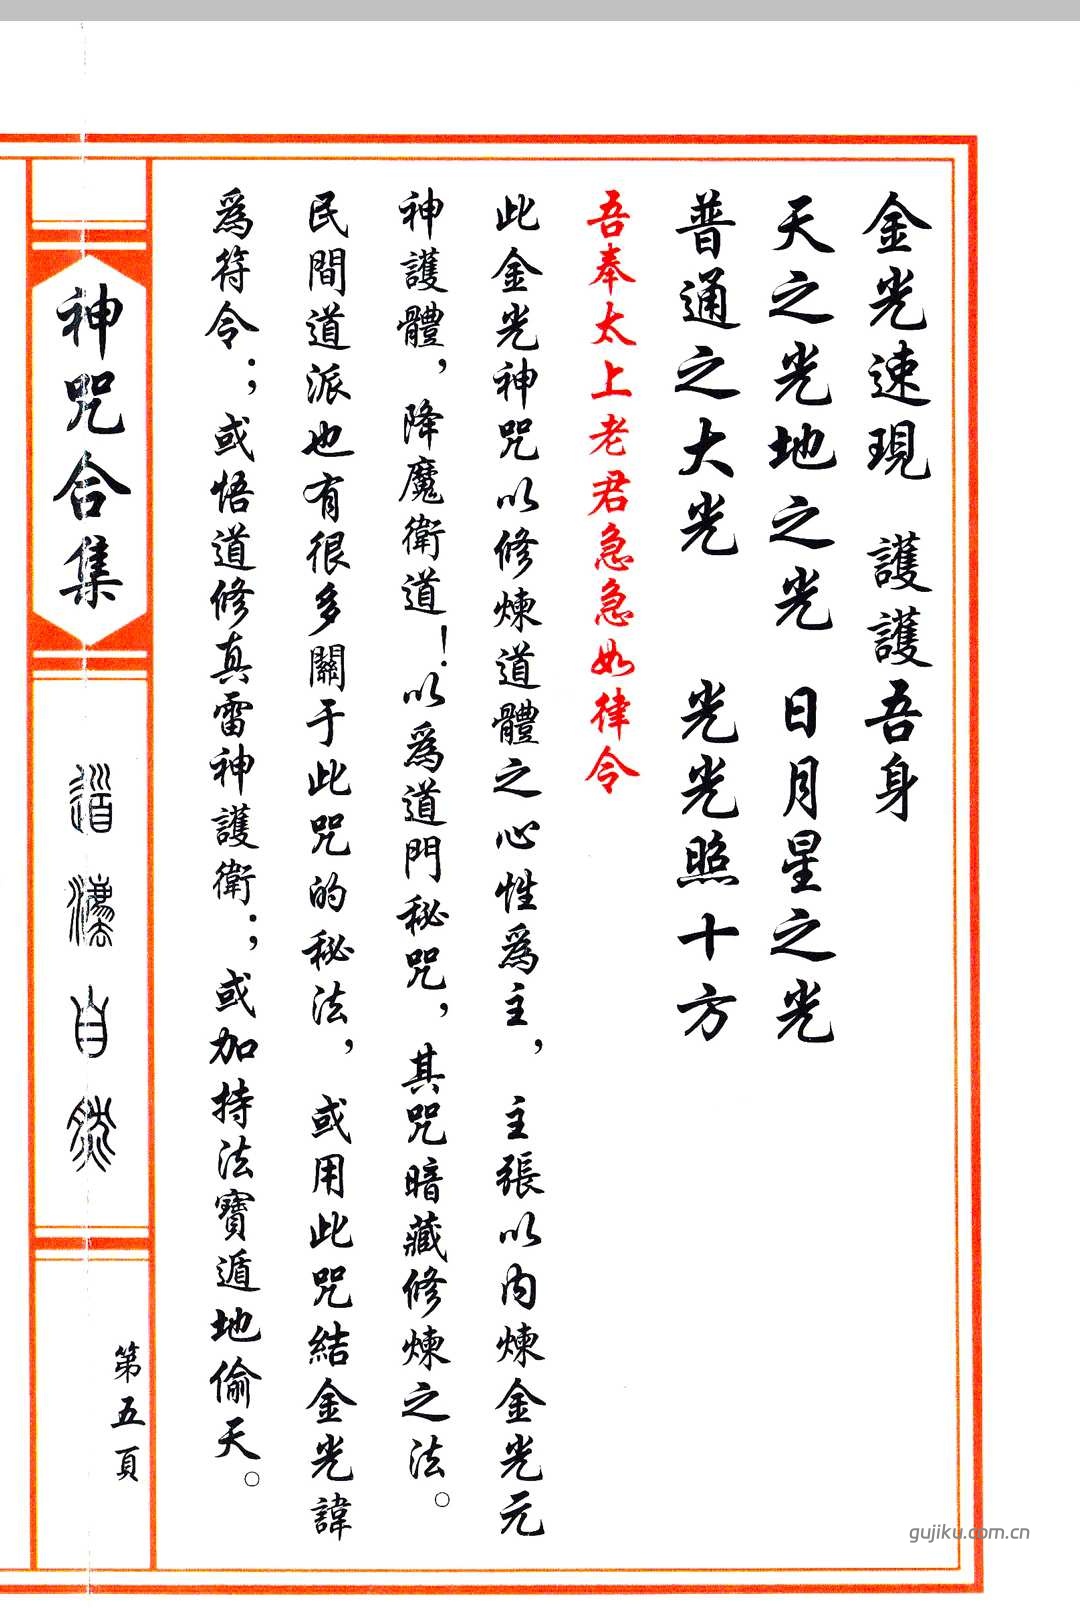 金光速現　護護吾身
天之光地之光　日月星之光
普通之大光　光光照十方
吾奉太上老君急急如律令
此金光神咒以修煉道體之心性爲主，主張以内煉金光元
神護體，降魔衛道！以爲道門秘咒，其咒暗藏修煉之法。
民間道派也有很多關于此咒的秘法，或用此咒結金光諱
爲符令；，或悟道修真雷神護衛；，或加持法寶遁地偷天。
神咒合集
道法自然
第五頁
gujiku.com.cn